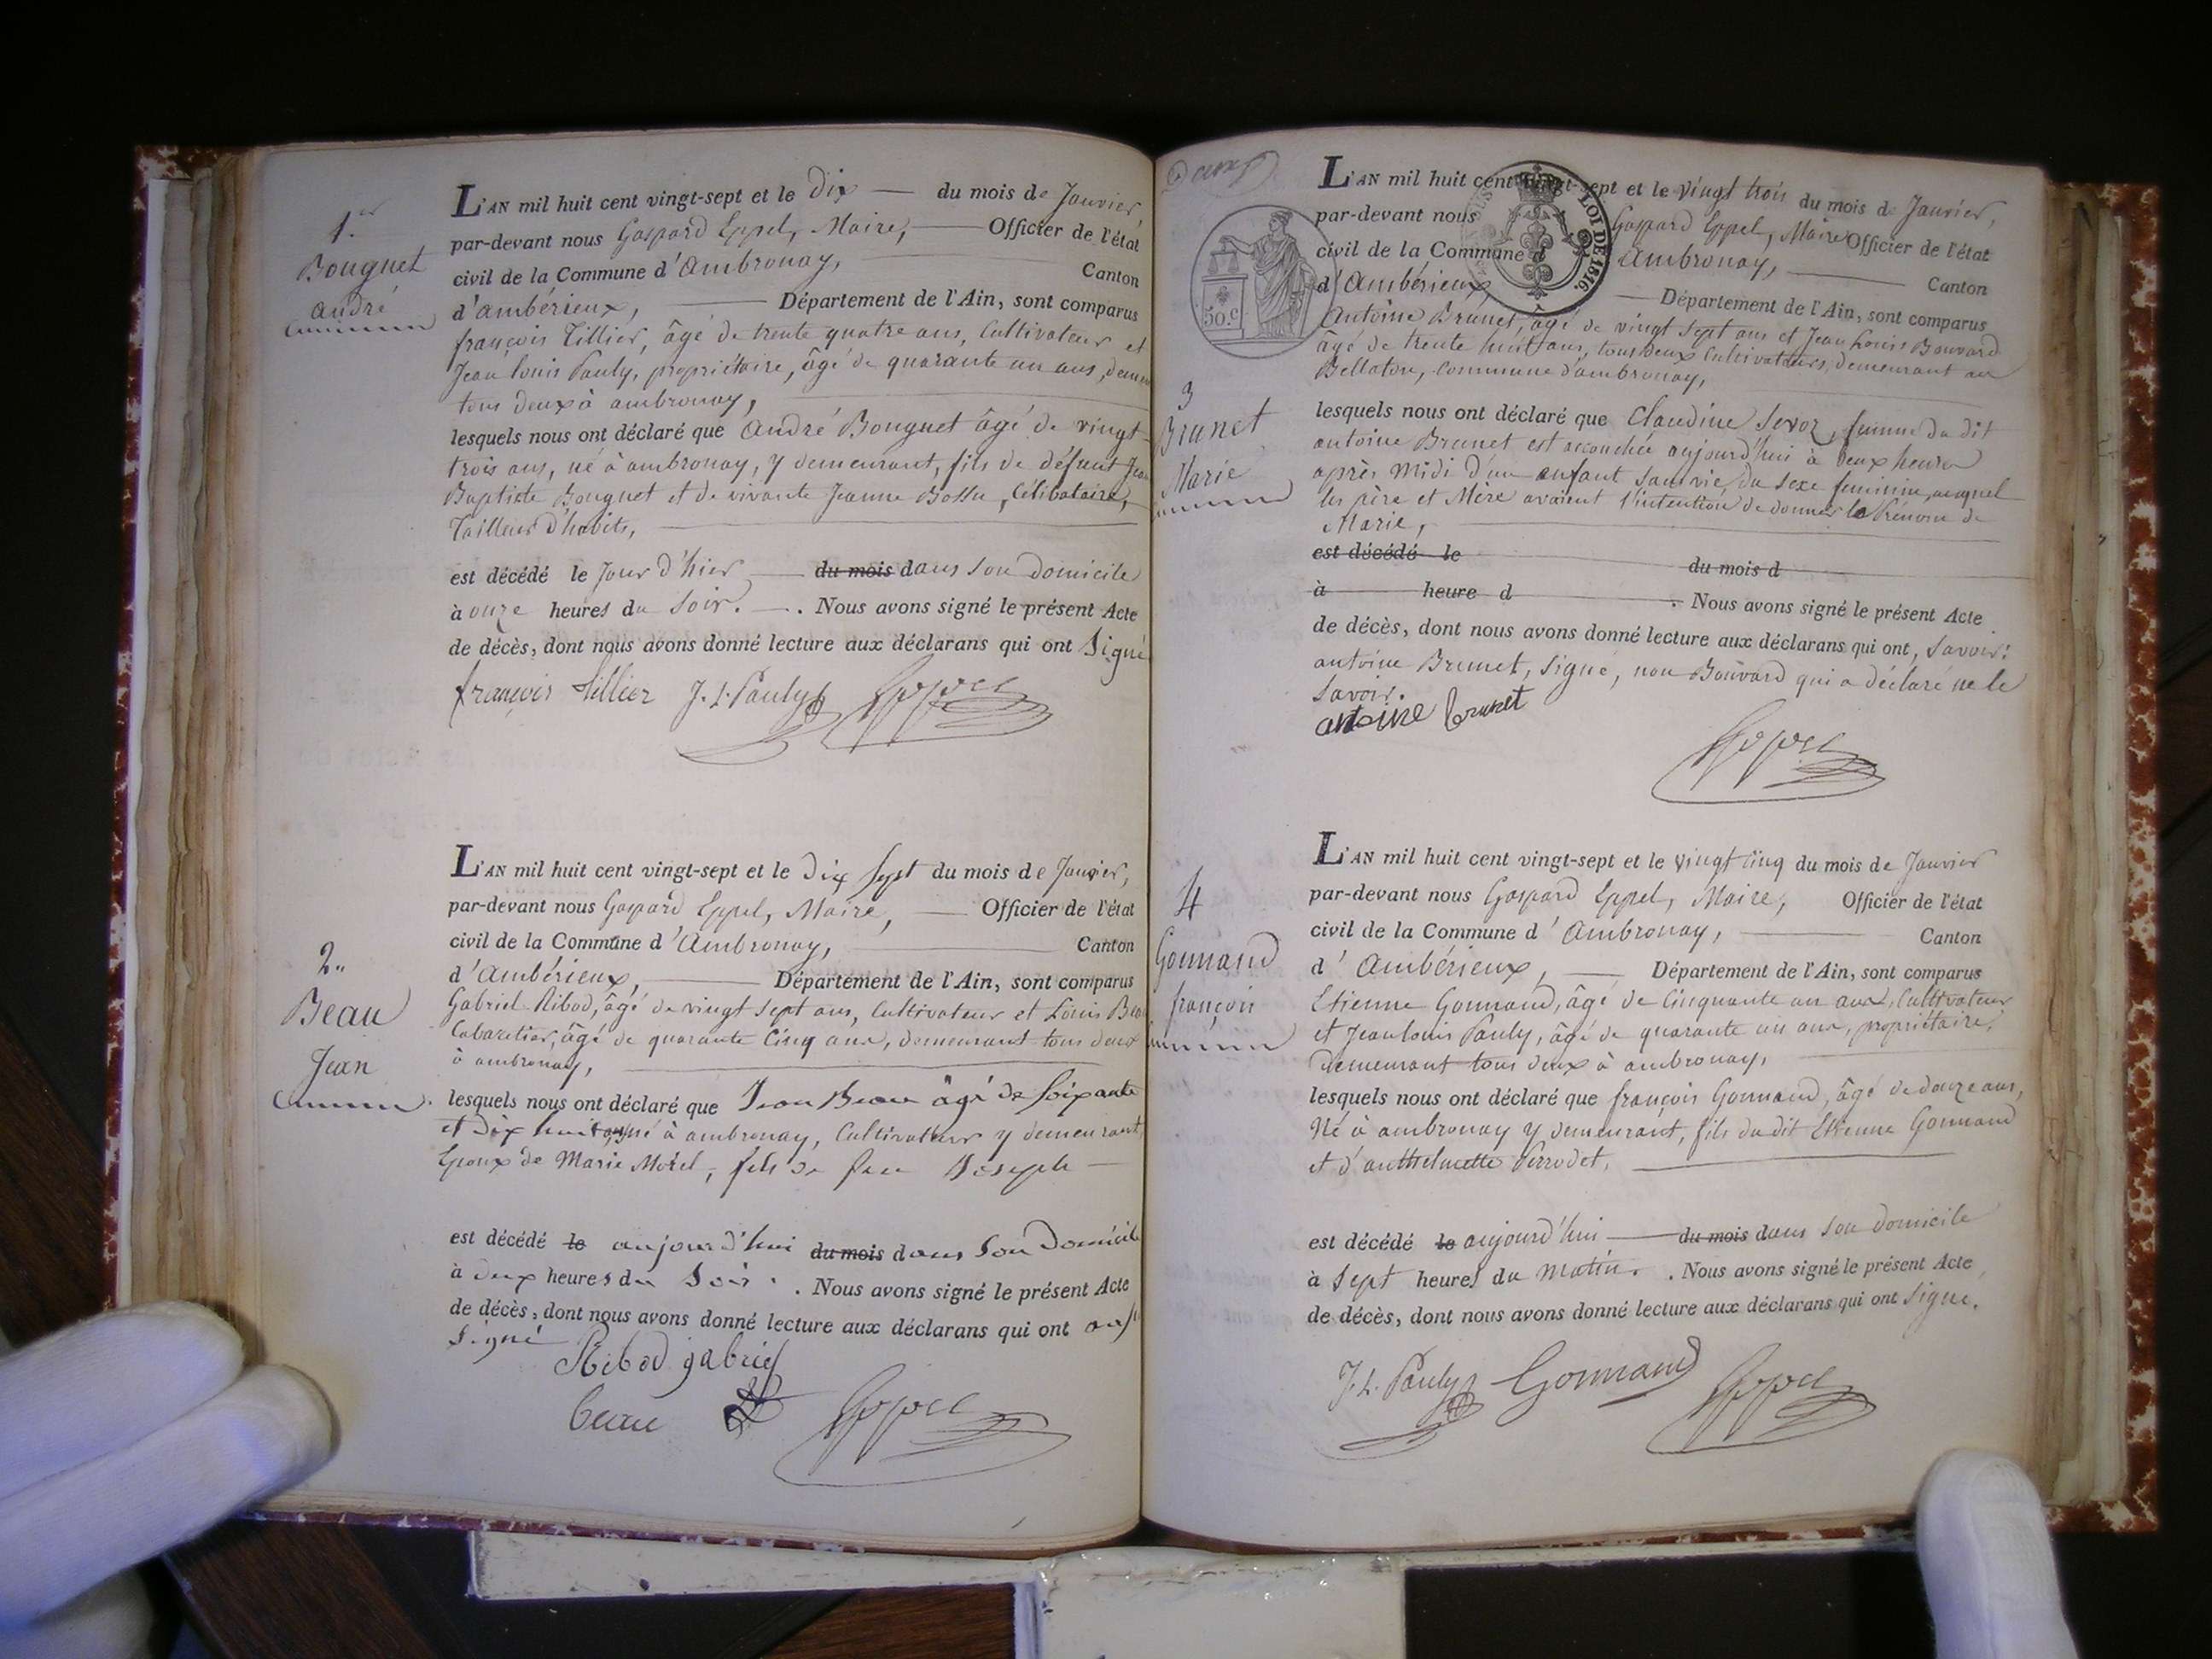 1.er
Bouguet
André
L'AN mil huit cent vingt-sept et le Dix — du mois de Janvier,
par-devant nous Gaspard Eppel, Maire, — Officier de l'état
civil de la Commune d'Ambronay, — Canton
d'ambérieux, — Département de l'Ain, sont comparus
françois Tillier, âgé de trente quatre ans, Cultivateur et
Jean louis Pauly, propriétaire, âgé de quarante un ans, demeu
tous deux à ambronay,
lesquels nous ont déclaré que André Bouguet âgé de vingt
trois ans, né à ambronay, y demeurant, fils de défunt Jean
Baptiste Bouguet et de vivante Jeanne Bossu, Célibataire,
Tailleur d'habits,
est décédé le Jour d'hier — du mois dans son domicile
à onze heures du Soir. — . Nous avons signé le présent Acte
de décès, dont nous avons donné lecture aux déclarans qui ont Signé
françois tillier J. L. Pauly Eppel
2.
Beau
Jean
L'AN mil huit cent vingt-sept et le Dix Sept du mois de Janvier,
par-devant nous Gaspard Eppel, Maire, — Officier de l'état
civil de la Commune d'Ambronay, — Canton
d'Ambérieux, — Département de l'Ain, sont comparus
Gabriel Ribod, âgé de vingt sept ans, Cultivateur et Louis Beau
Cabaretier, âgé de quarante Cinq ans, demeurant tous deux
à ambronay,
lesquels nous ont déclaré que Jean Beau âgé de Soixante
et dix huit ans né à ambronay, Cultivateur y demeurant,
Epoux de Marie Morel, fils de feu Joseph —
est décédé le aujourd'hui du mois dans Son Domicile
à deux heures du Soir . Nous avons signé le présent Acte
de décès, dont nous avons donné lecture aux déclarans qui ont
Signé Ribod gabriel
beau Eppel
50.c
LOI DE 1816.
3
Brunet
Marie
L'AN mil huit cent vingt-sept et le vingt trois du mois de Janvier,
par-devant nous Gaspard Eppel, Maire Officier de l'état
civil de la Commune d Ambronay, — Canton
d'Ambérieux, — Département de l'Ain, sont comparus
Antoine Brunet, âgé de vingt Sept ans et Jean Louis Bouvard
âgé de trente huit ans, tous deux Cultivateurs, demeurant au
Bellaton, Commune d'ambronay,
lesquels nous ont déclaré que Claudine Sevoz, femme du dit
antoine Brunet est accouchée aujourd'hui à deux heures
après Midi d'un enfant sans vie, du sexe feminin, auquel
les père et Mère avaient l'intention de donner le Prénom de
Marie,
est décédé le du mois d
à heure d . Nous avons signé le présent Acte
de décès, dont nous avons donné lecture aux déclarans qui ont, Savoir:
antoine Brunet, Signé, non Bouvard qui a déclaré ne le
Savoir.
antoine brunet
Eppel
4
Gonnand
françois
L'AN mil huit cent vingt-sept et le vingt Cinq du mois de Janvier
par-devant nous Gaspard Eppel, Maire, Officier de l'état
civil de la Commune d'Ambronay, — Canton
d'Ambérieux, — Département de l'Ain, sont comparus
Etienne Gonnand, âgé de Cinquante un ans, Cultivateur
et Jean louis Pauly, âgé de quarante un ans, propriétaire,
Demeurant tous deux à ambronay,
lesquels nous ont déclaré que françois Gonnand, âgé de douze ans,
Né à ambronay y demeurant, fils du dit Etienne Gonnand
et d'anthelmette Perrodet,
est décédé le aujourd'hui — du mois dans son domicile
à Sept heures du Matin. . Nous avons signé le présent Acte
de décès, dont nous avons donné lecture aux déclarans qui ont Signé.
J. L. Pauly Gonnand Eppel